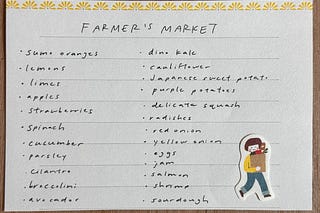 FARMER'S MARKET
· sumo oranges
· lemons
· limes
· apples
· strawberries
· spinach
· cucumber
· parsley
· cilantro
· broccolini
· avocados
· dino kale
· cauliflower
· Japanese sweet potato
· purple potatoes
· delicate squash
· radishes
· red onion
· yellow onion
· eggs
· jam
· salmon
· shrimp
· sourdough